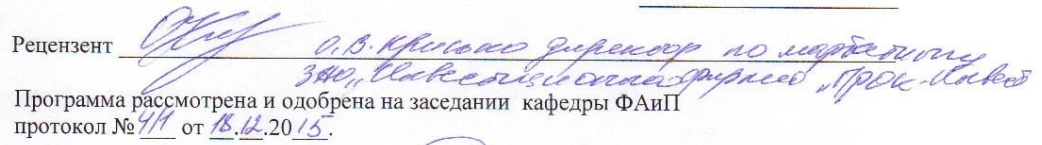 Рецензент О.В. Крисько директор по маркетингу
ЗАО „Инвестиционная фирма „Прок-Инвест
Программа рассмотрена и одобрена на заседании кафедры ФАиП
протокол № 4/1 от 18.12.2015.